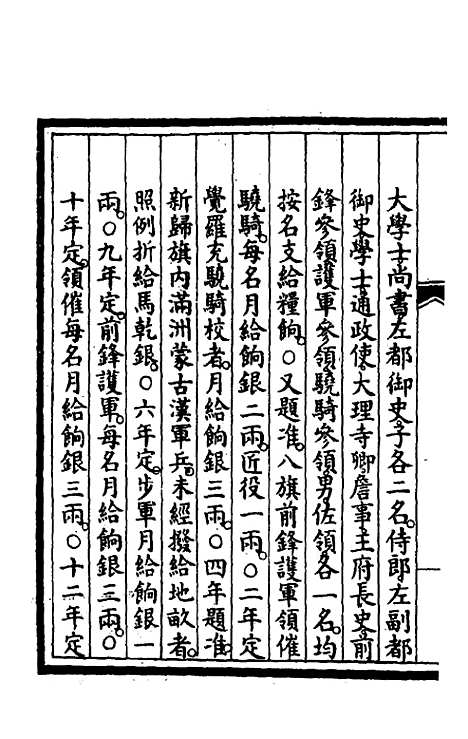 大學士尚書左都御史子各二名侍郎左副都
御史學士通政使大理寺卿詹事王府長史前
鋒參領護軍參領驍騎參領男佐領各一名均
按名支給糧餉〇又題准八旗前鋒護軍領催
驍騎每名月給餉銀二兩匠役一兩〇二年定
覺羅充驍騎校者月給餉銀三兩〇四年題准
新歸旗內滿洲蒙古漢軍兵未經撥給地畝者
照例折給馬乾銀〇六年定步軍月給餉銀一
兩〇九年定前鋒護軍每名月給餉銀三兩〇
十年定領催每名月給餉銀三兩〇十二年定